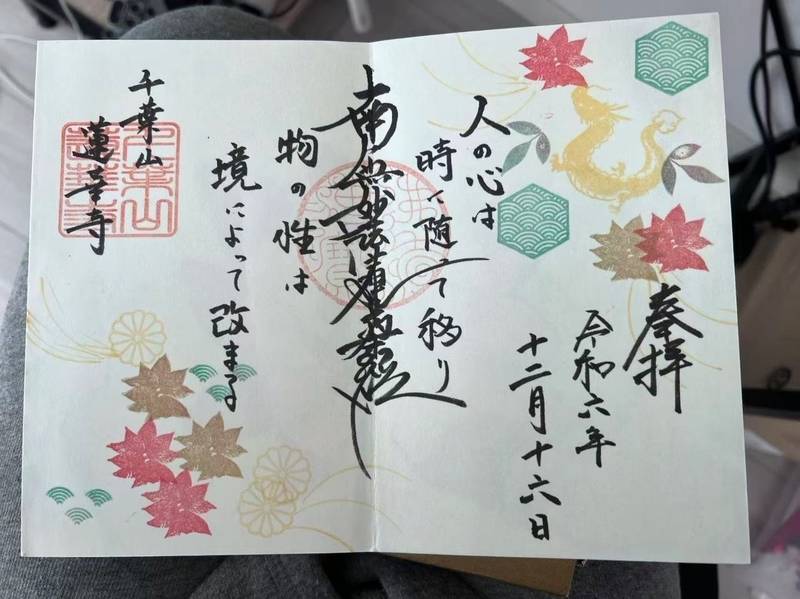 奉拝
令和六年
十二月十六日
人の心は
時に随って移り
南無妙法蓮華経
物の性は
境によって改まる
千葉山
蓮華寺